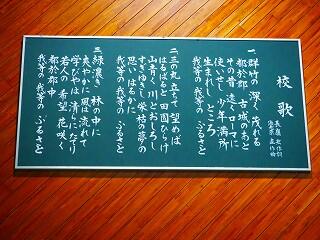 校歌
一、群竹の 深く茂れる
都於郡 古城のあと
その昔 遠くローマに
使いせし 少年満所
生まれし ところ
我等の 我等の ふるさと
二、三の丸 立ちて 望めば
はるばると 田園ひらけ
山青く 川とおしろし
すぎゆきし 栄枯の夢の
思い はるかに
我等の 我等の ふるさと
三、緑濃き 林の中に
爽やかに 風は流れて
学びやは 清らにたてり
若人の 希望 花咲く
都於郡中
我等の 我等の ふるさと